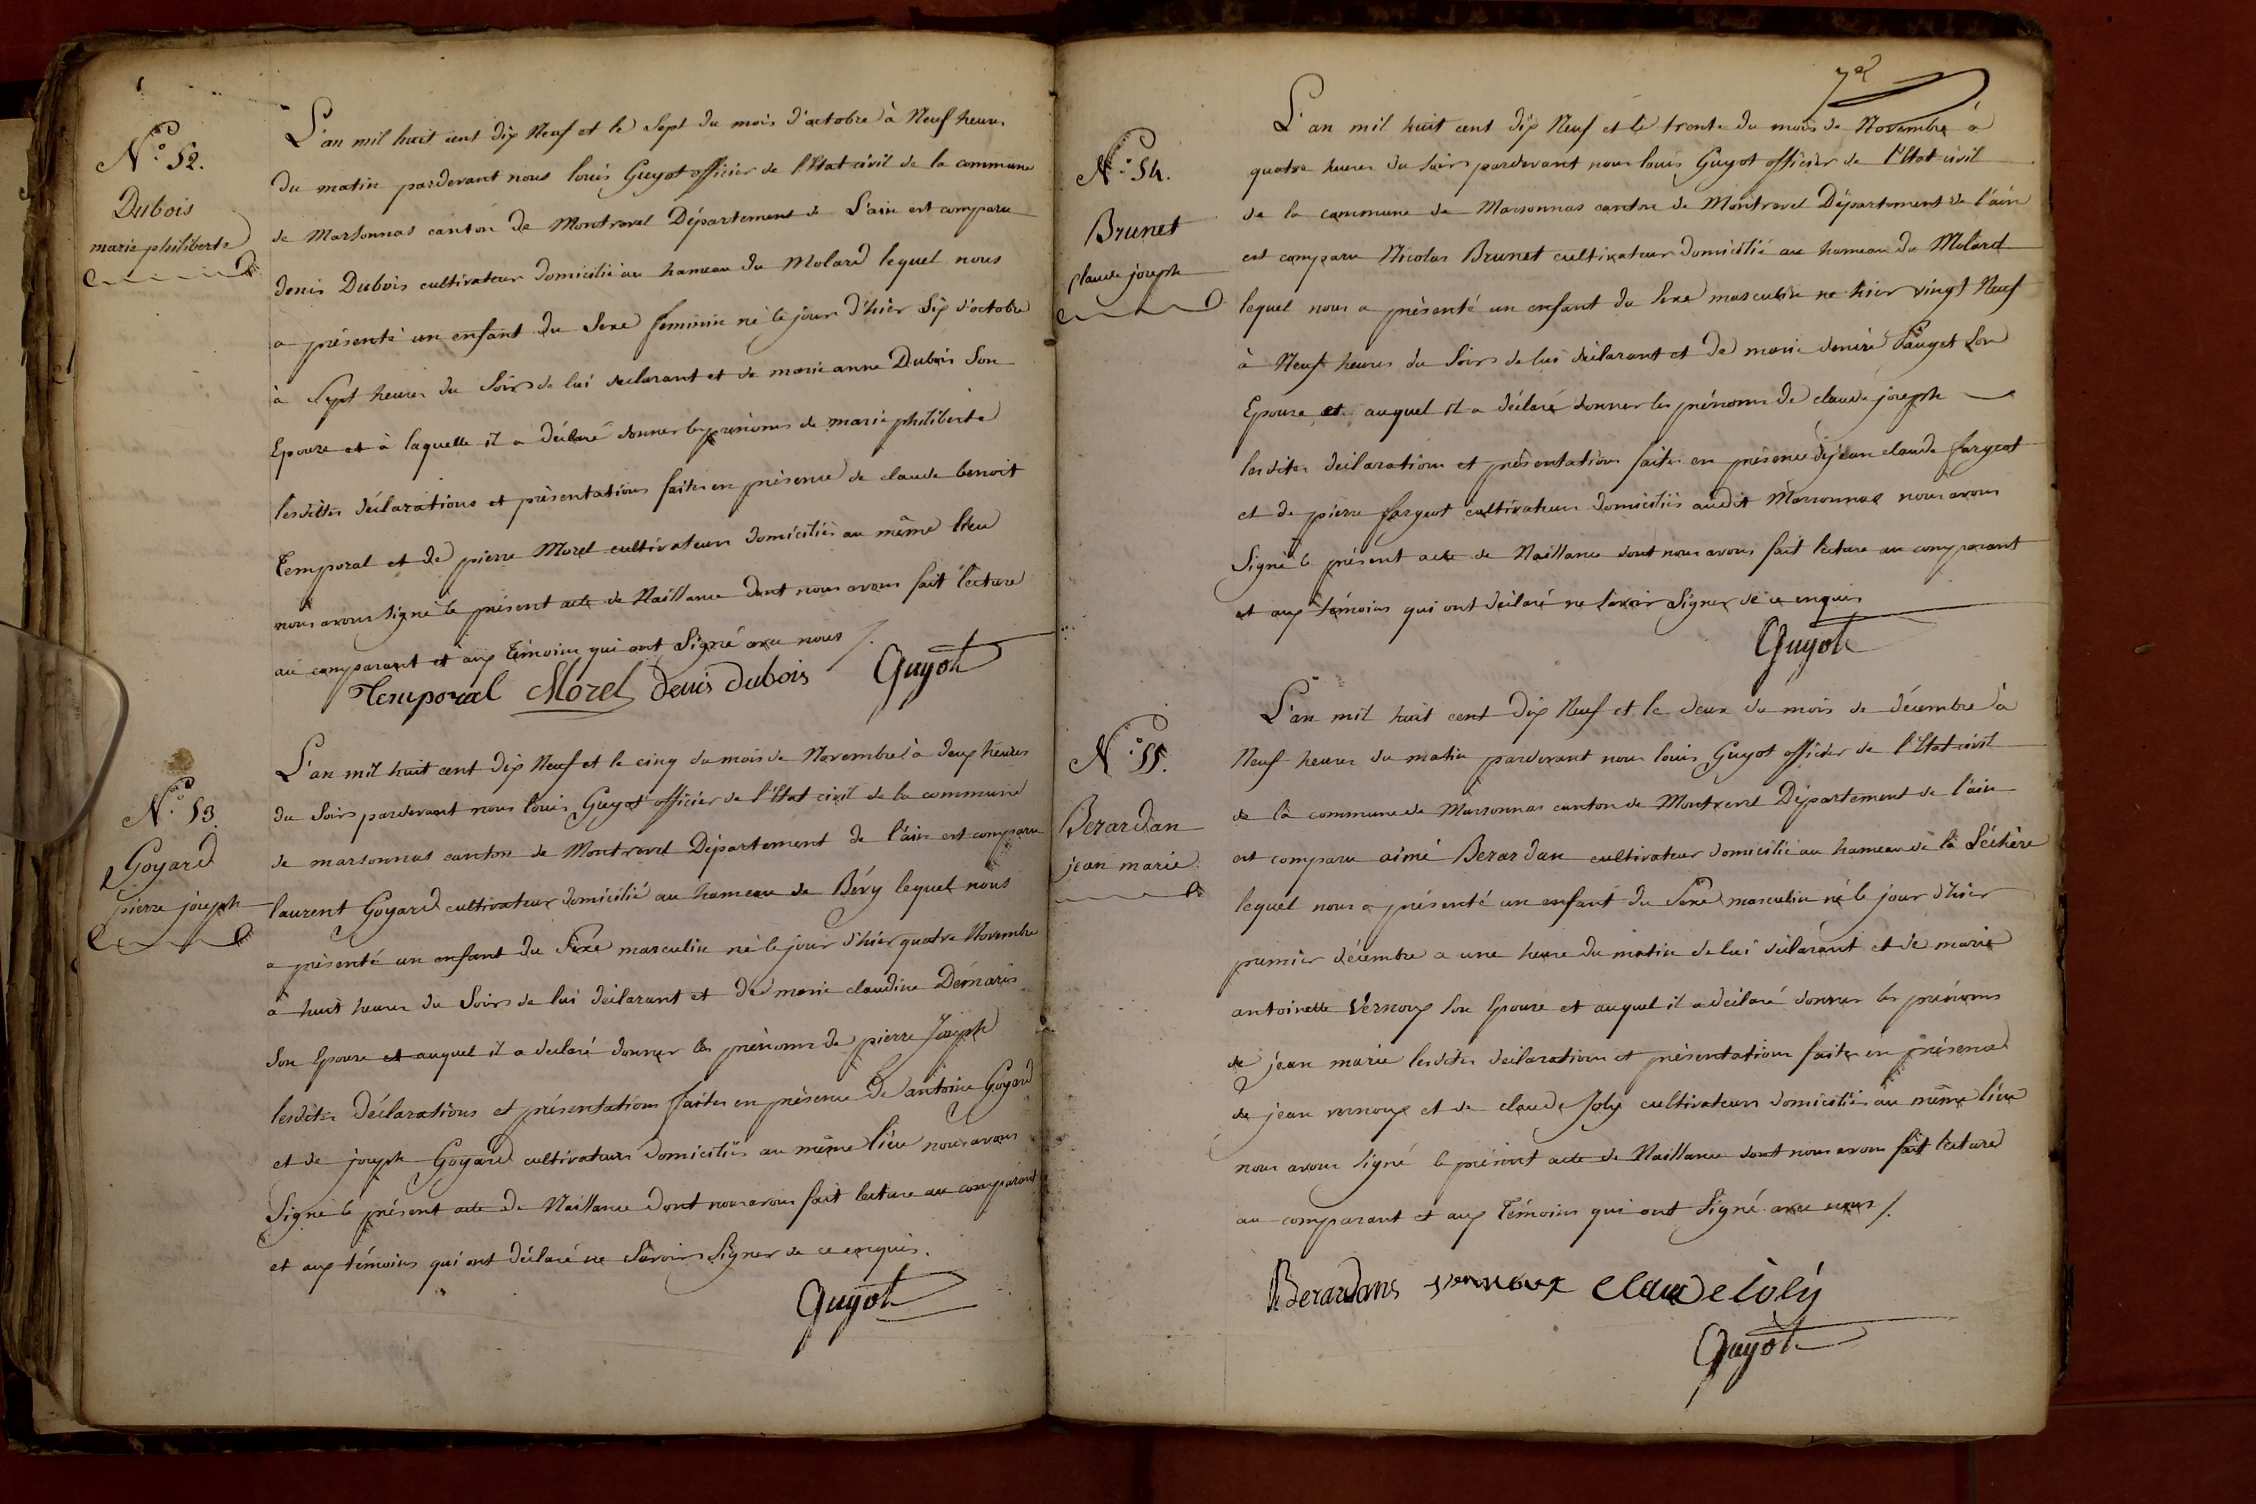 N.° 52.
Dubois
marie philiberte
L'an mil huit cent dix Neuf et le Sept du mois d'octobre à Neuf heures
du matin pardevant nous louis Guyot officier de l'Etat civil de la commune
de Marsonnas canton de Montrevel Département de L'ain est comparu
denis Dubois cultivateur domicilié au hameau du Molard lequel nous
a présenté un enfant du Sexe feminin né le jour d'hier Six d'octobre
à Sept heures du Soir de lui declarant et de marie anne Dubois Son
Epouse et à laquelle il a déclaré donner les prénoms de marie philiberte
lesdittes déclarations et présentations faites en présence de claude benoit
Temporal et de pierre Morel cultivateurs domiciliés au même lieu
nous avons signé le présent acte de Naissance dont nous avons fait lecture
au comparant et aux Témoins qui ont Signé avec nous /.
Temporal Morel denis dubois Guyot
N.° 53.
Goyard
pierre joseph
L'an mil huit cent dix Neuf et le cinq du mois de Novembre à deux heures
du Soir pardevant nous louis Guyot officier de l'Etat civil de la commune
de marsonnas canton de Montrevel Département de l'ain est comparu
laurent Goyard cultivateur domicilié au hameau de Bévy lequel nous
a présenté un enfant du Sexe masculin né le jour d'hier quatre Novembre
à huit heures du Soir de lui déclarant et de marie claudine Démaris
Son Epouse et auquel il a declaré donner les prénoms de pierre Joseph
lesdites Déclarations et présentations faites en présence de antoine Goyard
et de joseph Goyard cultivateurs domiciliés au même lieu nous avons
Signé le présent acte de Naissance dont nous avons fait lecture au comparant
et aux témoins qui ont déclaré ne Savoir Signer de ce enquis.
Guyot
N.° 54.
Brunet
claude joseph
L'an mil huit cent dix Neuf et le trente du mois de Novembre à
quatre heures du Soir pardevant nous louis Guyot officier de l'Etat civil
de la commune de Marsonnas canton de Montrevel Département de l'ain
est comparu Nicolas Brunet cultivateur domicilié au hameau du Molard
lequel nous a présenté un enfant du Sexe masculin né hier vingt Neuf
à Neuf heures du Soir de lui déclarant et de marie denise Pauget Son
Epouse et auquel il a déclaré donner les prénoms de claude joseph
lesdites déclarations et présentations faites en présence de jean claude fargeot
et de pierre fargeot cultivateurs domiciliés audit Marsonnas nous avons
Signé le présent acte de Naissance dont nous avons fait lecture au comparant
et aux témoins qui ont déclaré ne Savoir Signer de ce enquis
Guyot
N.° 55.
Berardan
jean marie
L'an mil huit cent dix Neuf et le deux du mois de décembre à
Neuf heures du matin pardevant nous louis Guyot officier de l'Etat civil
de la commune de Marsonnas canton de Montrevel Département de l'ain
est comparu aimé Berardan cultivateur domicilié au hameau de la Séchère
lequel nous a présenté un enfant du Sexe masculin né le jour d'hier
premier décembre a une heure du matin de lui déclarant et de marie
antoinette Vernoux Son Epouse et auquel il a déclaré donner les prénoms
de jean marie lesdites déclarations et présentations faites en présence
de jean vernoux et de claude Joly cultivateurs domiciliés au même lieu
nous avons signé le présent acte de Naissance dont nous avons fait lecture
au comparant et aux Témoins qui ont Signé avec nous /.
Berardans vernoux claude joly
Guyot